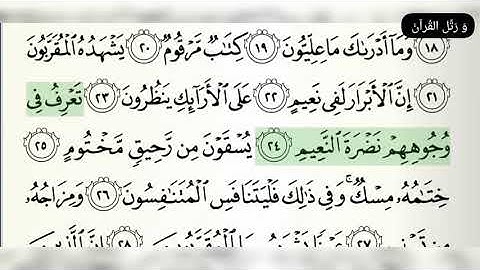 وَ رَتِّلِ القُرآنَ
١٨ وَمَآ أَدْرَىٰكَ مَا عِلِّيُّونَ ١٩ كِتَـٰبٌ مَّرْقُومٌ ٢٠ يَشْهَدُهُ ٱلْمُقَرَّبُونَ
٢١ إِنَّ ٱلْأَبْرَارَ لَفِى نَعِيمٍ ٢٢ عَلَى ٱلْأَرَآئِكِ يَنظُرُونَ ٢٣ تَعْرِفُ فِى
وُجُوهِهِمْ نَضْرَةَ ٱلنَّعِيمِ ٢٤ يُسْقَوْنَ مِن رَّحِيقٍ مَّخْتُومٍ ٢٥
خِتَـٰمُهُۥ مِسْكٌ ۚ وَفِى ذَٰلِكَ فَلْيَتَنَافَسِ ٱلْمُتَنَـٰفِسُونَ ٢٦ وَمِزَاجُهُۥ
٢٧ ٢٨ إِنَّ ٱلَّذِينَ